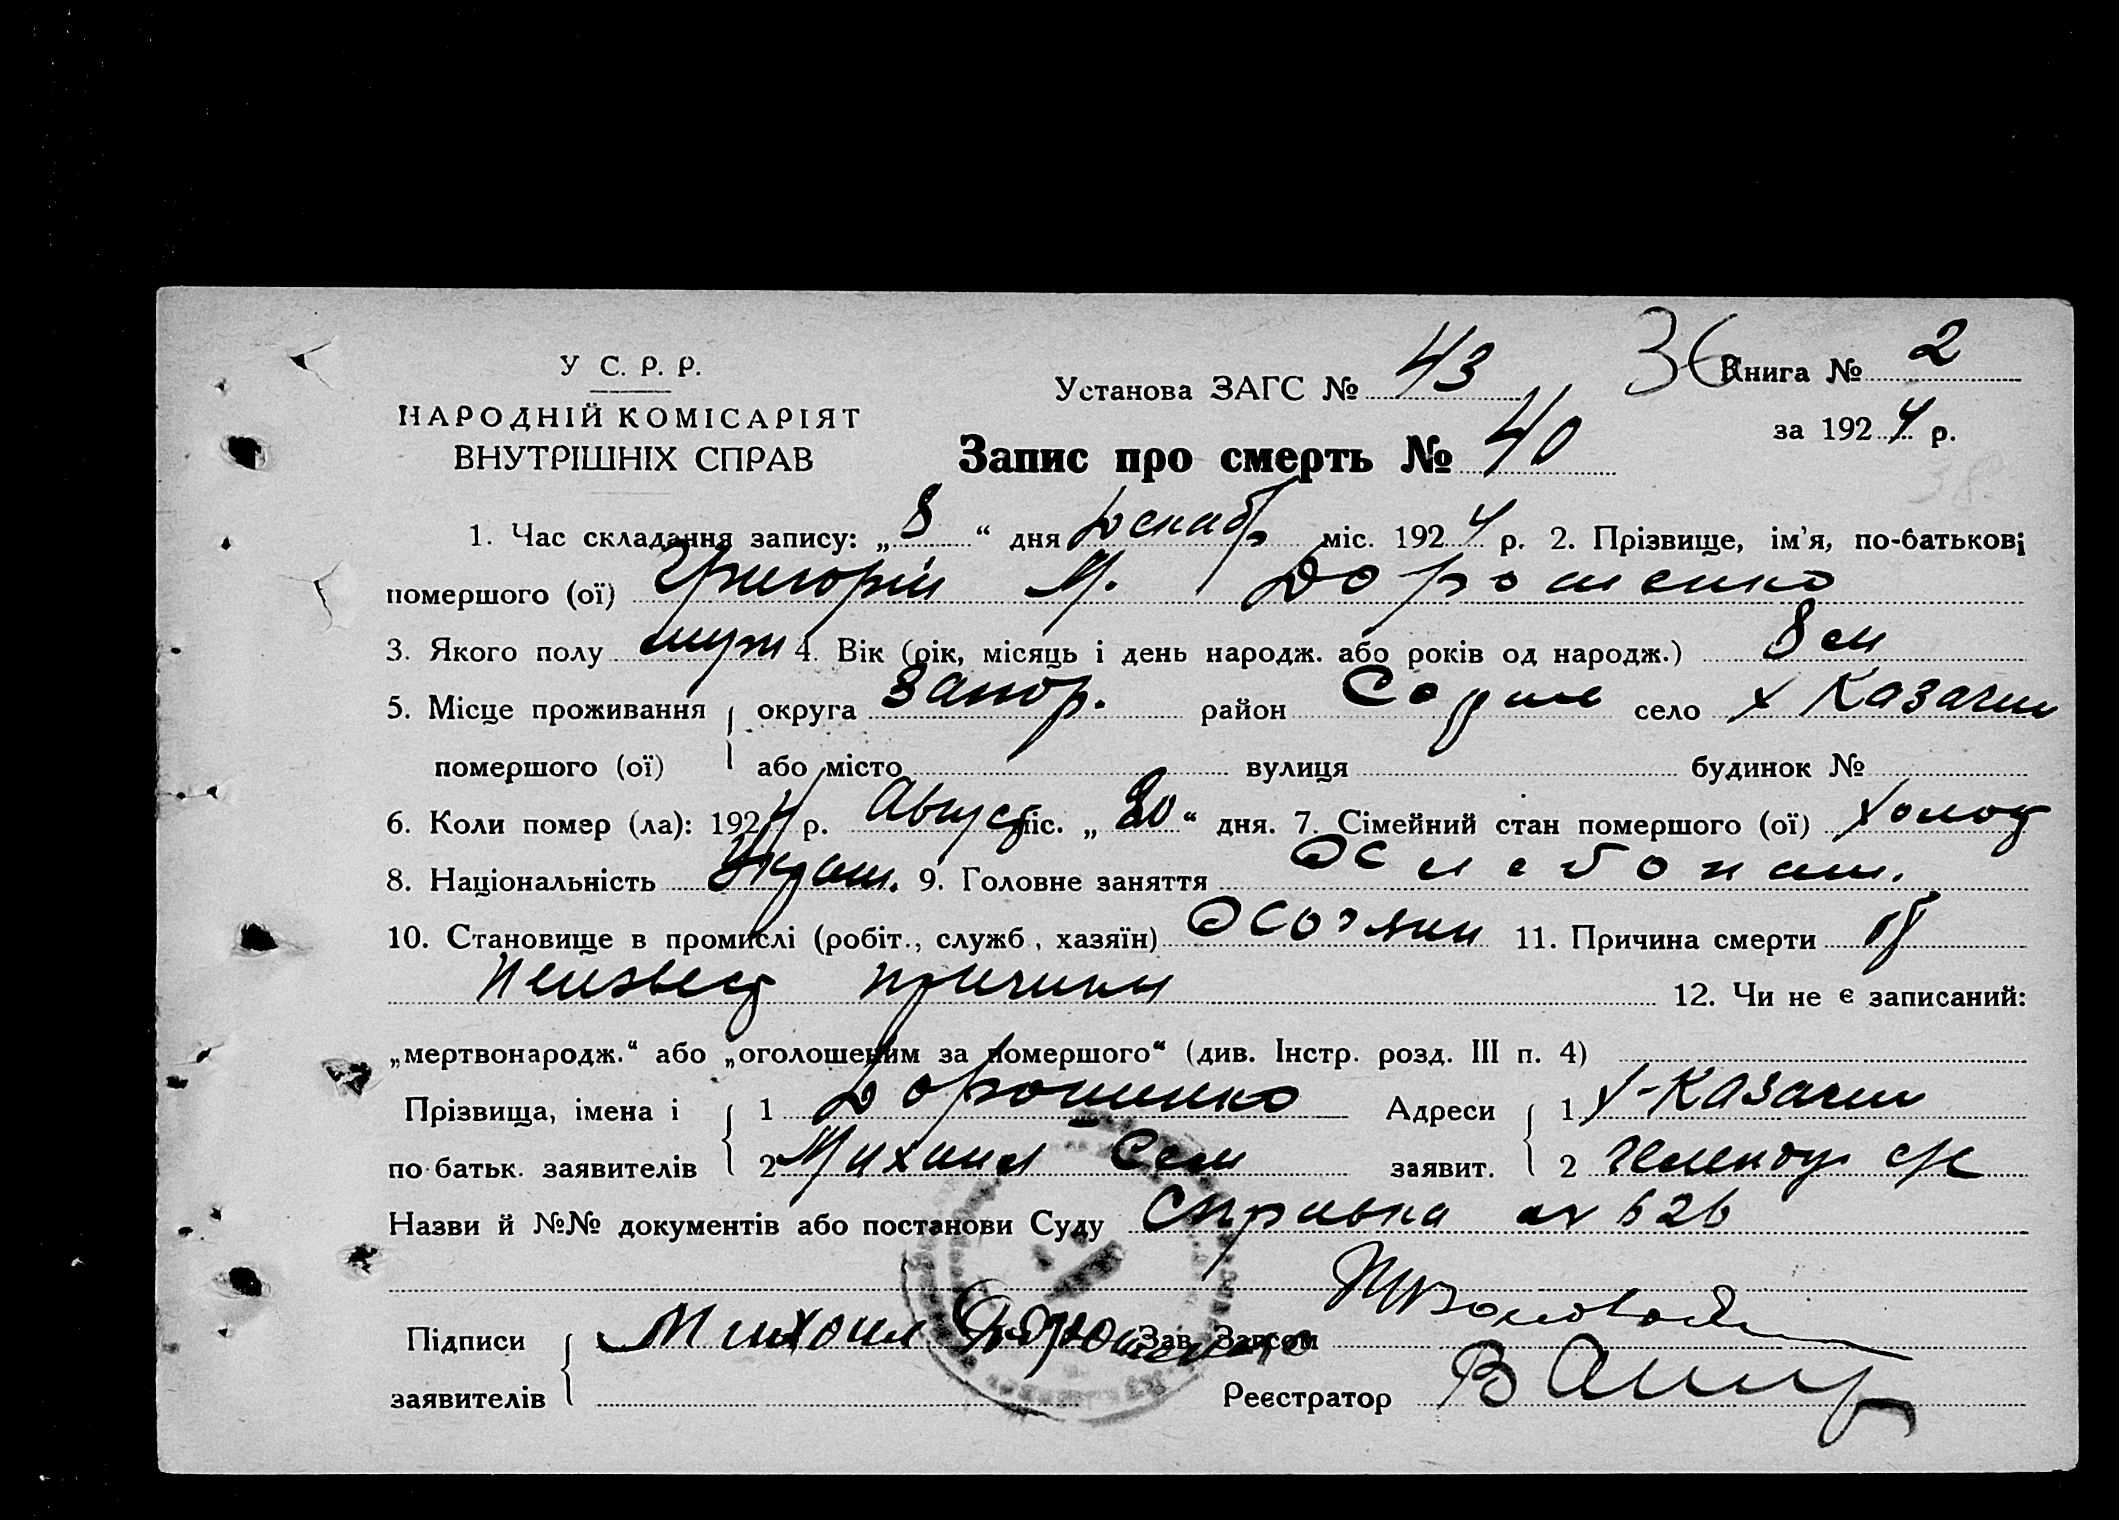 У С. Р. Р.
НАРОДНІЙ КОМІСАРІЯТ
ВНУТРІШНІХ СПРАВ
Установа ЗАГС № 43
36 Книга № 2
за 1924 р.
Запис про смерть № 40
1. Час складання запису: „8“ дня Декабр міс. 1924 р. 2. Прізвище, ім’я, по-батькові
помершого (ої) Григорій М. Дорошенко
3. Якого полу муж 4. Вік (рік, місяць і день народж. або років од народж.) 8 м
5. Місце проживання округа Запор. район село х Казачий
помершого (ої) або місто вулиця будинок №
6. Коли помер (ла): 1924 р. Август міс. „20“ дня. 7. Сімейний стан помершого (ої) холост
8. Національність Украин. 9. Головне заняття Хлебопаш.
10. Становище в промислі (робіт., служб, хазяїн) Хозяин 11. Причина смерти от
неизвест причины 12. Чи не є записаний:
„мертвонародж.“ або „оголошеним за помершого“ (див. Інстр. розд. III п. 4)
Прізвища, імена і 1 Дорошенко Адреси 1 х-Казачий
по батьк. заявителів 2 Михаил Сем заявит. 2 с/с
Назви й №№ документів або постанови Суду Справка № 626
Підписи Михаил Дорошенко Зав. Загсом
заявителів Реєстратор